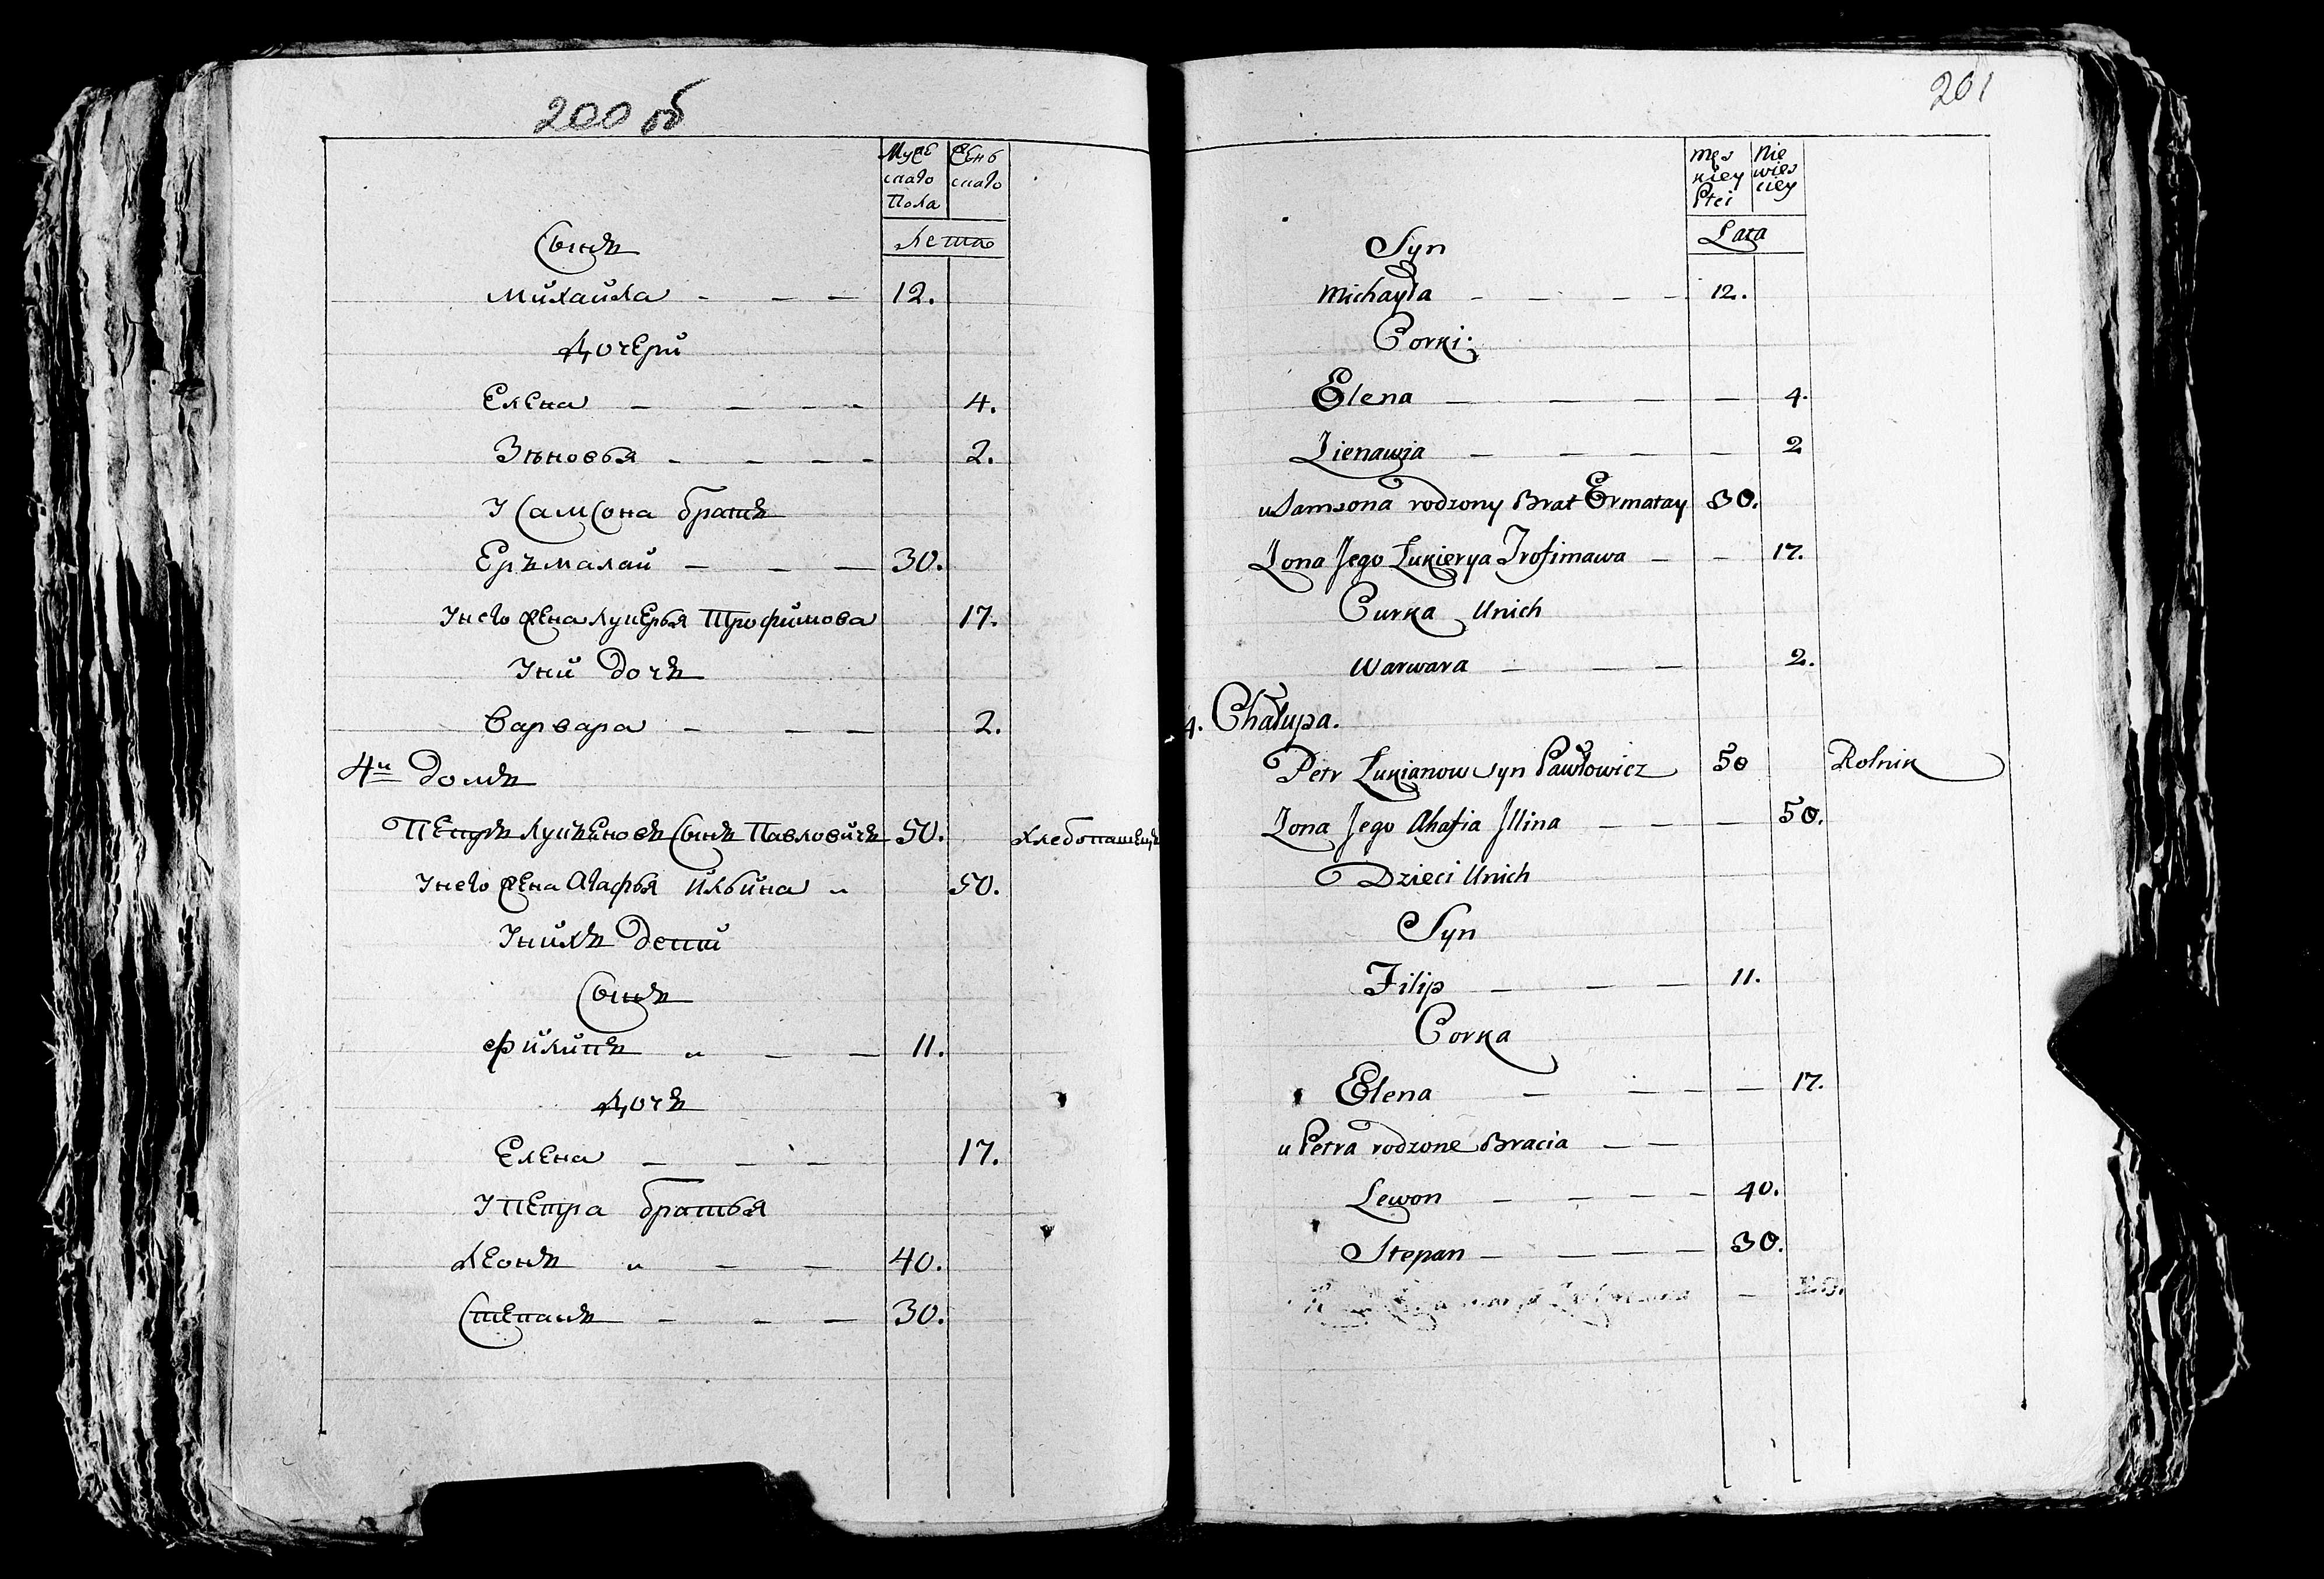 200 об
Мужескаго Пола
Женьскаго
Лета
Сынъ
Михайла - - - 12.
Дочери
Елена - - - 4.
Зѣновья - - - - 2.
У Самсона братъ
Еръмалай - - - 30.
У него жена Лукерья Трофимова 17.
У них дочь
Варвара - - - 2.
4й домъ
Петръ Лукьеновъ Сынъ Павловичь 50. хлебопашецъ
У него жена Агафья Ильина „ 50.
У нихъ дети
Сынъ
Филипъ „ - - 11.
Дочь
Елена - - - 17.
У Петра братья
Леонъ „ - - 40.
Степанъ - - - 30.
201
męskiey Płci
Niewiesciey
Lata
Syn
Michayła - - - - 12.
Corki.
Elena - - - - 4.
Zienawja - - - - 2
u Samsona rodzony Brat Ermałay 30.
Zona Jego Łukierya Trofimawa - - 17.
Curka Unich
Warwara - - - 2.
4. Chałupa.
Petr Łukianow syn Pawłowicz 50 Rolnik
Zona Jego Ahafia Illina - - - 50.
Dzieci Unich
Syn
Filip - - - 11.
Corka
Elena - - - - 17.
u Petra rodzone Bracia - -
Lewon - - - - 40.
Stepan - - - - 30.
- 20.